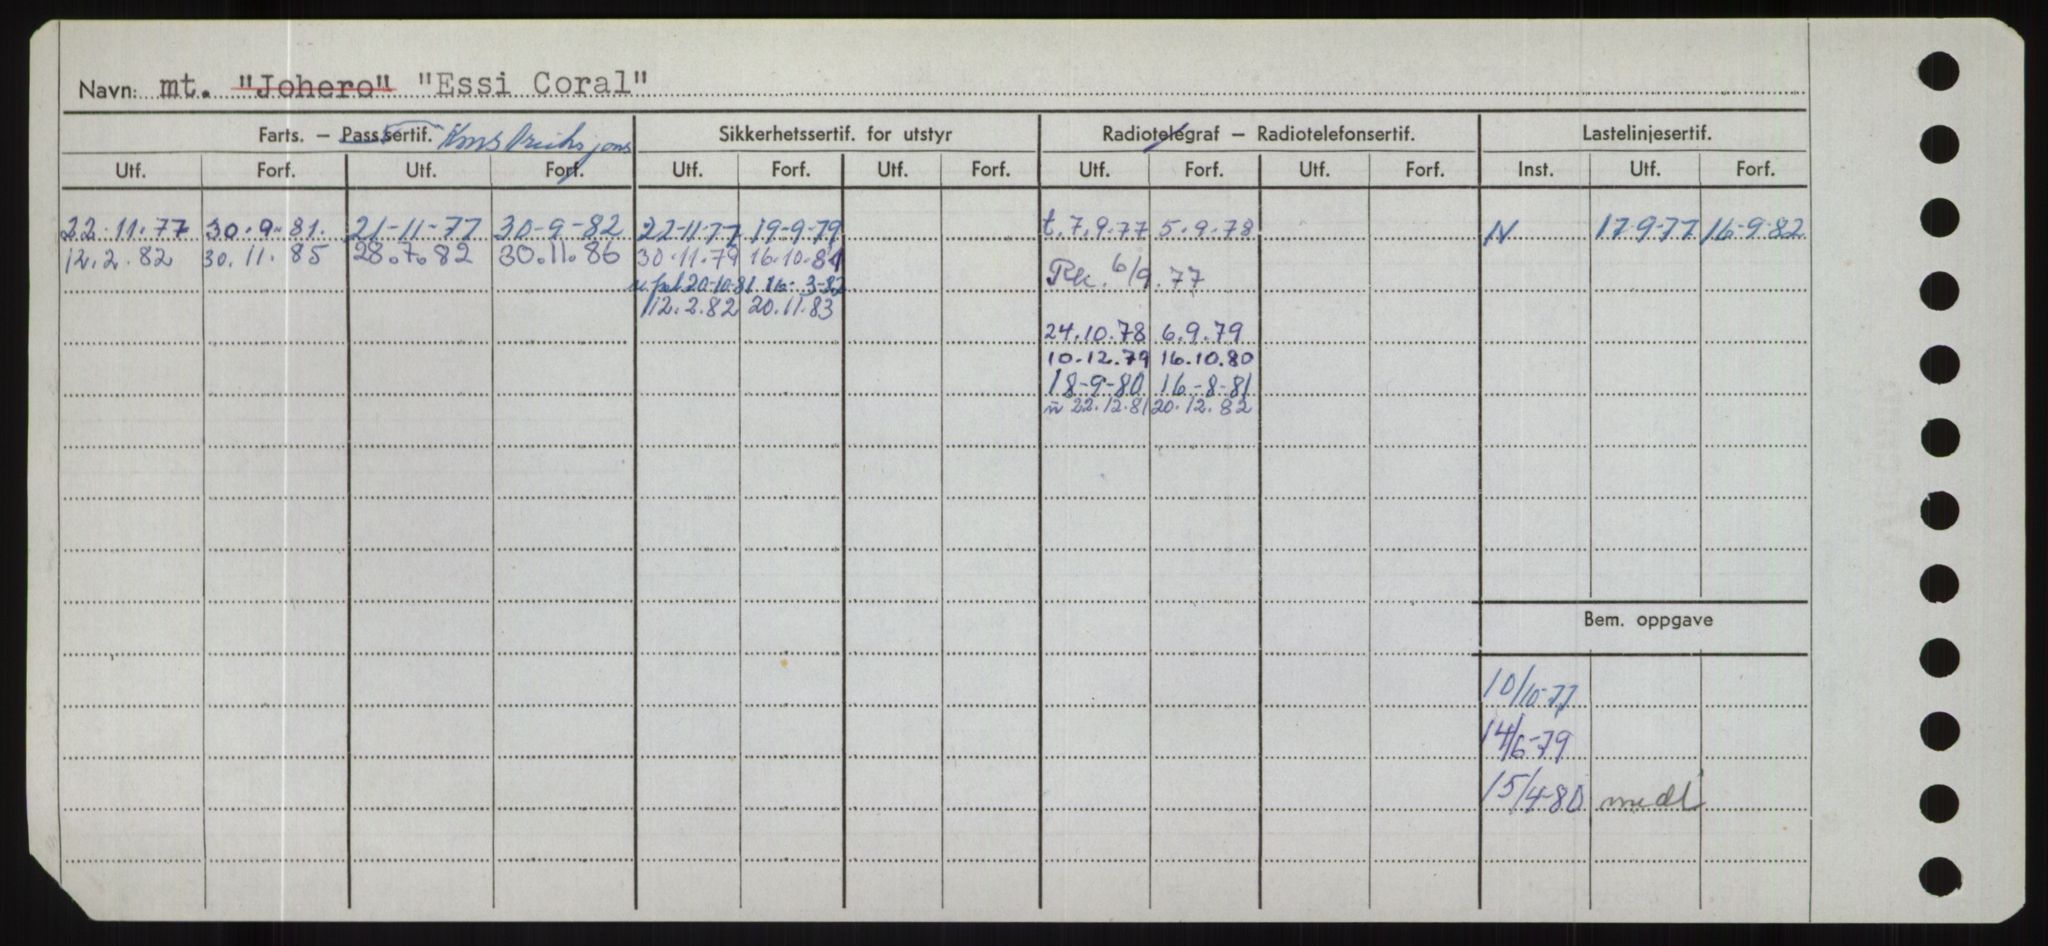 Navn: mt. "Johero" "Essi Coral"
Farts. – Pass.sertif. Sikkerhetssertif. for utstyr Radiotelegraf – Radiotelefonsertif. Lastelinjesertif.
Utf. Forf. Utf. Forf. Utf. Forf. Utf. Forf. Utf. Forf. Utf. Forf. Inst. Utf. Forf.
22.11.77 30.9.81. 21-11-77 30-9-82 22-11-77 19-9-79 t.7.9.77 5.9.78 N 17-9-77 16-9-82
12.2.82 30.11.85 28.7.82 30.11.86 30.11.79 16.10.81 Rk. 6/9.77
20-10-81 16-3-82
12.2.82 20.11.83
24.10.78 6.9.79
10.12.79 16.10.80
18-9-80 16-8-81
22.12.81 20.12.82
Bem. oppgave
10/10-77
14/6-79
15/4-80 medl